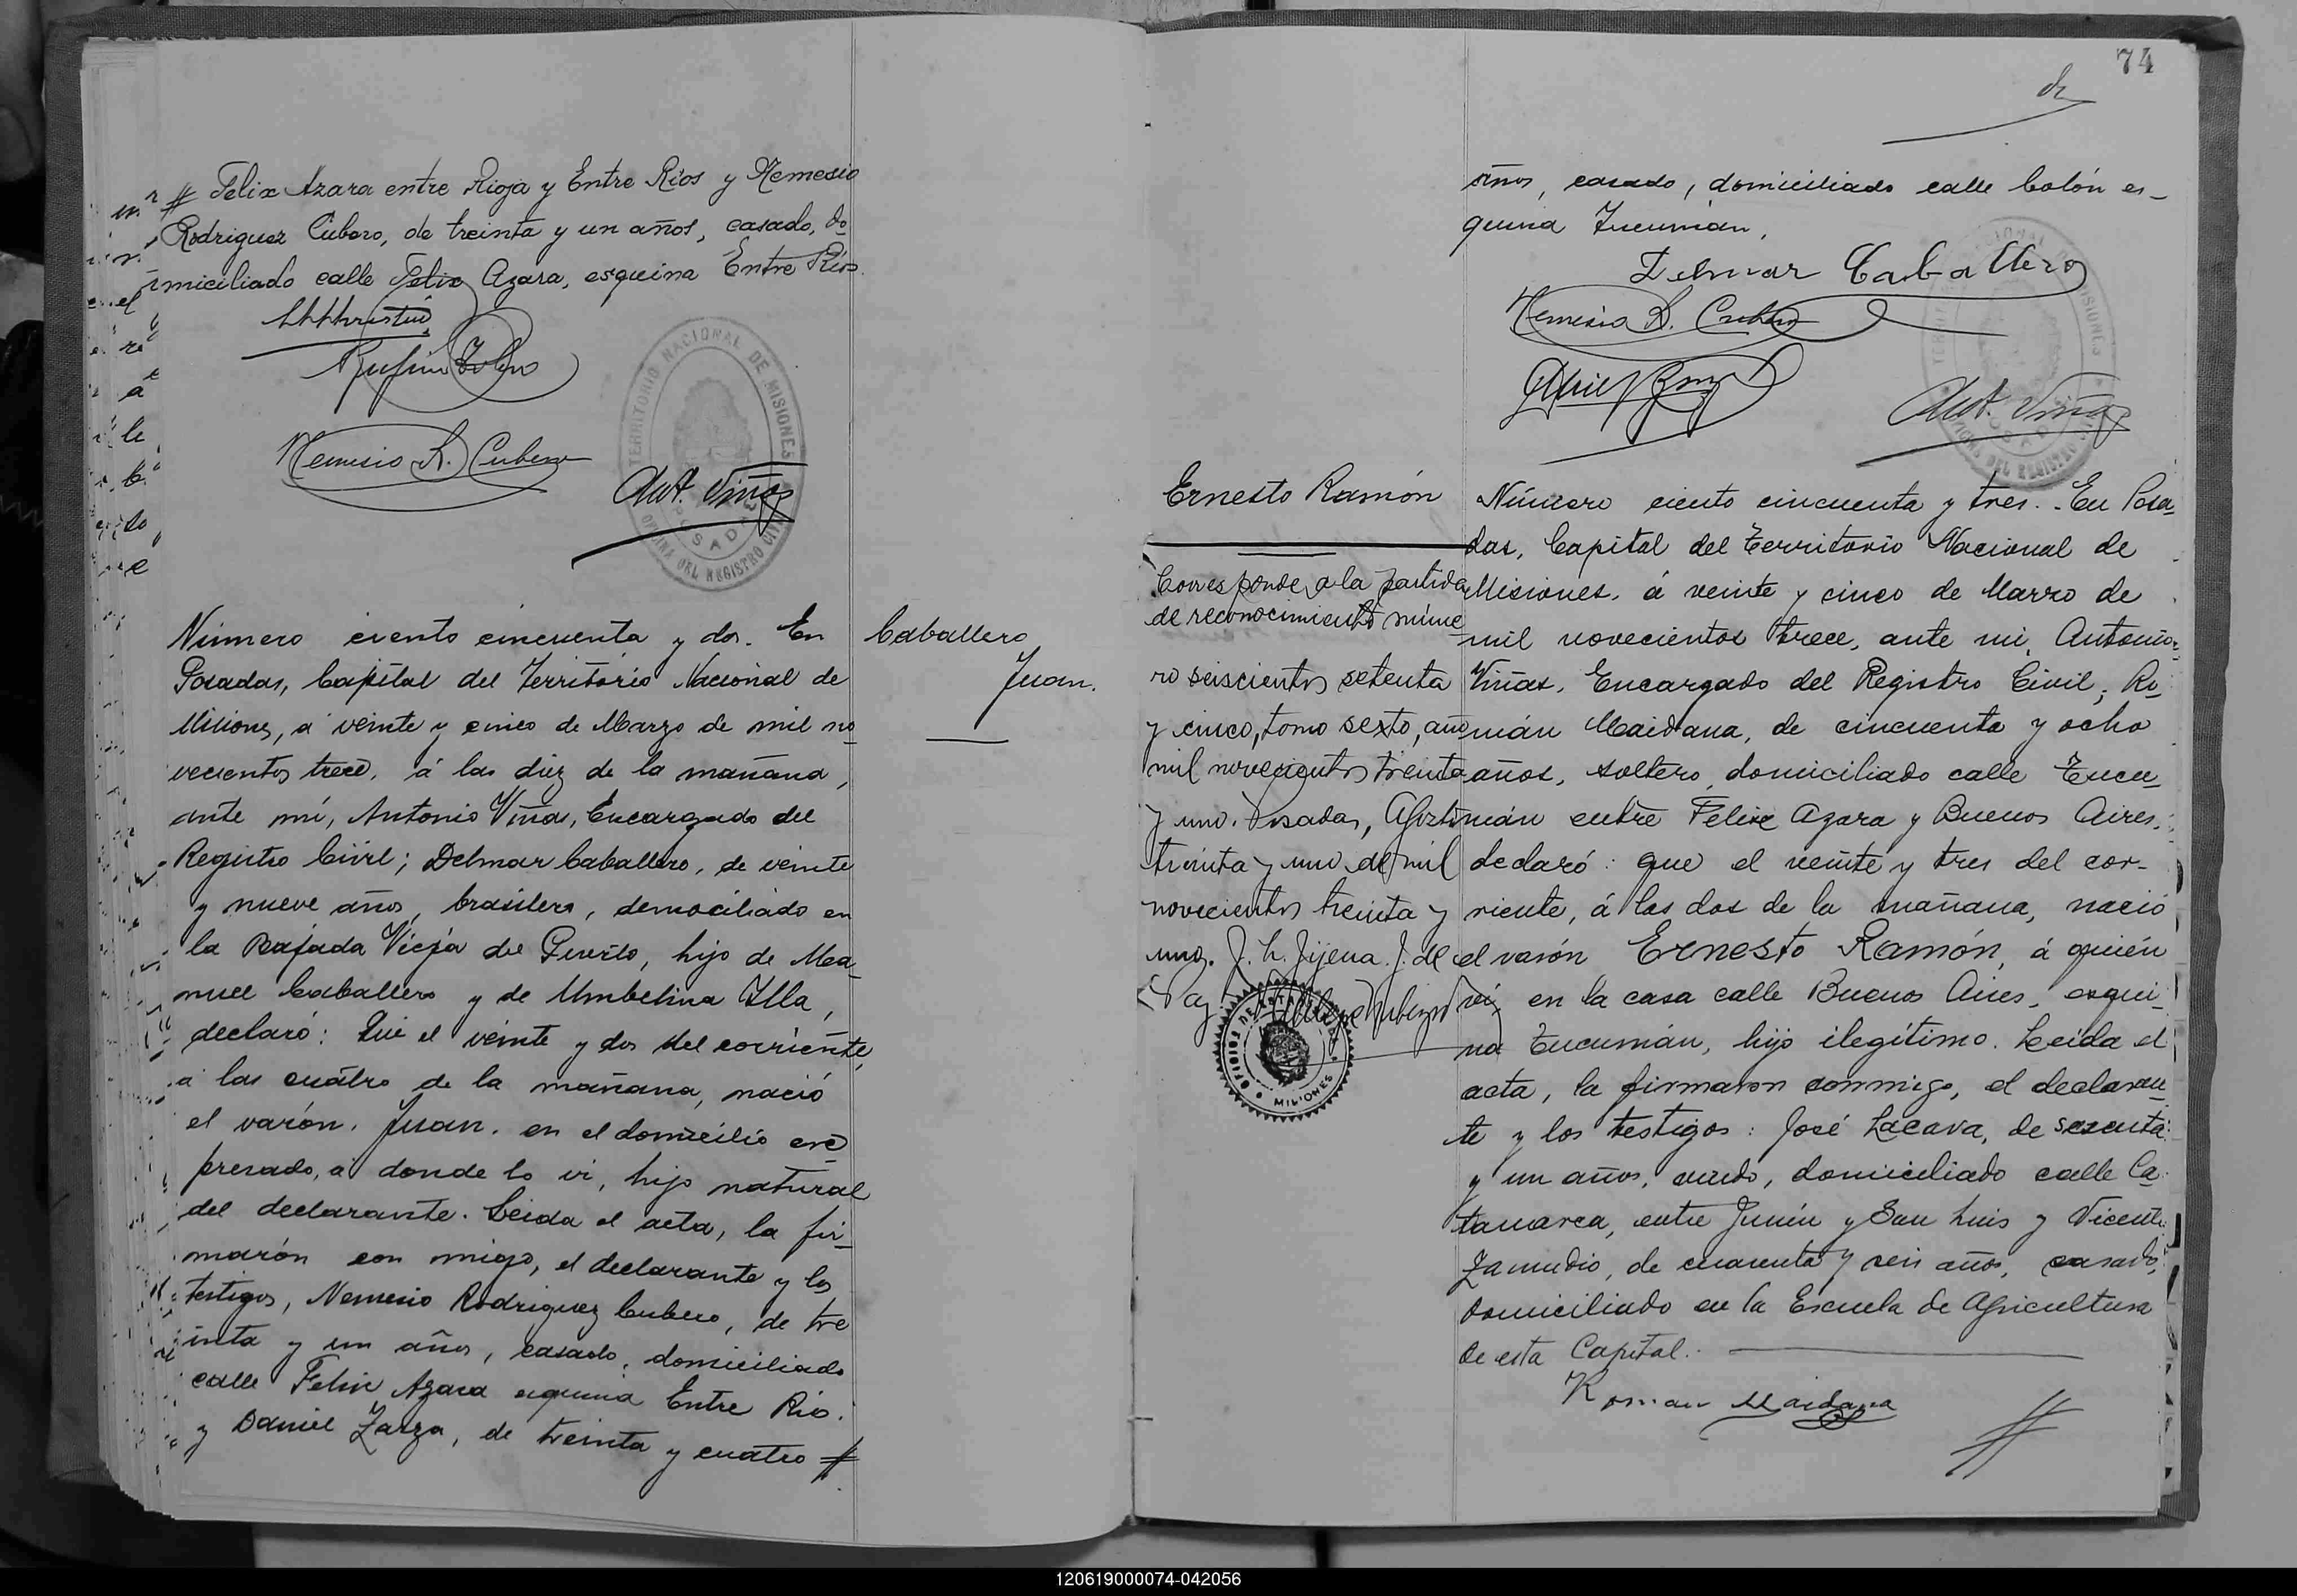 # Felix Azara entre Rioja y Entre Ríos y Nemesio
Rodriguez Cubero, de treinta y un años, casado, do
miciliado calle Felix Azara, esquina Entre Ríos.
Nemesio R. Cubero
Ant. Viñas
TERRITORIO NACIONAL DE MISIONES
OFICINA DEL REGISTRO CIVIL
POSADAS
Número ciento cincuenta y dos. En
Posadas, Capital del Territorio Nacional de
Misiones, á veinte y cinco de Marzo de mil no
vecientos trece, á las diez de la mañana,
ante mí, Antonio Viñas, Encargado del
Registro Civil; Delmar Caballero, de veinte
y nueve años, brasilero, domociliado en
la Bajada Vieja del Puerto, hijo de Ma-
nuel Caballero y de Umbelina Illa,
declaró: Que el veinte y dos del corriente,
a las cuatro de la mañana, nació
el varón. Juan. en el domicilio ex
presado, a donde lo vi, hijo natural
del declarante. Leida el acta, la fir-
marón con migo, el declarante y los
testigos, Nemesio Rodriguez Cubero, de tre
inta y un años, casado, domiciliado
calle Felix Azara esquina Entre Rios.
y Daniel Zarza, de treinta y cuatro #
Caballero
Juan.
74
años, casado, domiciliado calle Colón es-
quina Tucumán.
Delmar Caballero
Nemesio R. Cubero
Ant. Viñas
Ernesto Ramón
Corresponde a la partida
de reconocimiento núme
ro seiscientos setenta
y cinco, tomo sexto, año
mil novecientos treinta
y uno. Posadas, Agosto
treinta y uno de mil
novecientos treinta y
uno. J. L. Jijena. J. de
Paz
MISIONES
Número ciento cincuenta y tres. - En Posa-
das, Capital del Territorio Nacional de
Misiones, á veinte y cinco de Marzo de
mil novecientos trece, ante mi, Antonio
Viñas, Encargado del Registro Civil; Ro-
mán Maidana, de cincuenta y ocho
años, soltero, domiciliado calle Tucu-
mán entre Felix Azara y Buenos Aires.
declaró: que el veinte y tres del cor-
riente, á las dos de la mañana, nació
el varón Ernesto Ramón, á quién
ví en la casa calle Buenos Aires, esqui-
na Tucumán, hijo ilegítimo. Leída el
acta, la firmaron conmigo, el declaran
te y los testigos: José Lacava, de sesenta
y un años, viudo, domiciliado calle Ca-
tamarca, entre Junín y San Luis y Vicente
Zamudio, de cuarenta y seis años, casado,
domiciliado en la Escuela de Agricultura
de esta Capital.
Roman Maidana
#
120619000074-042056